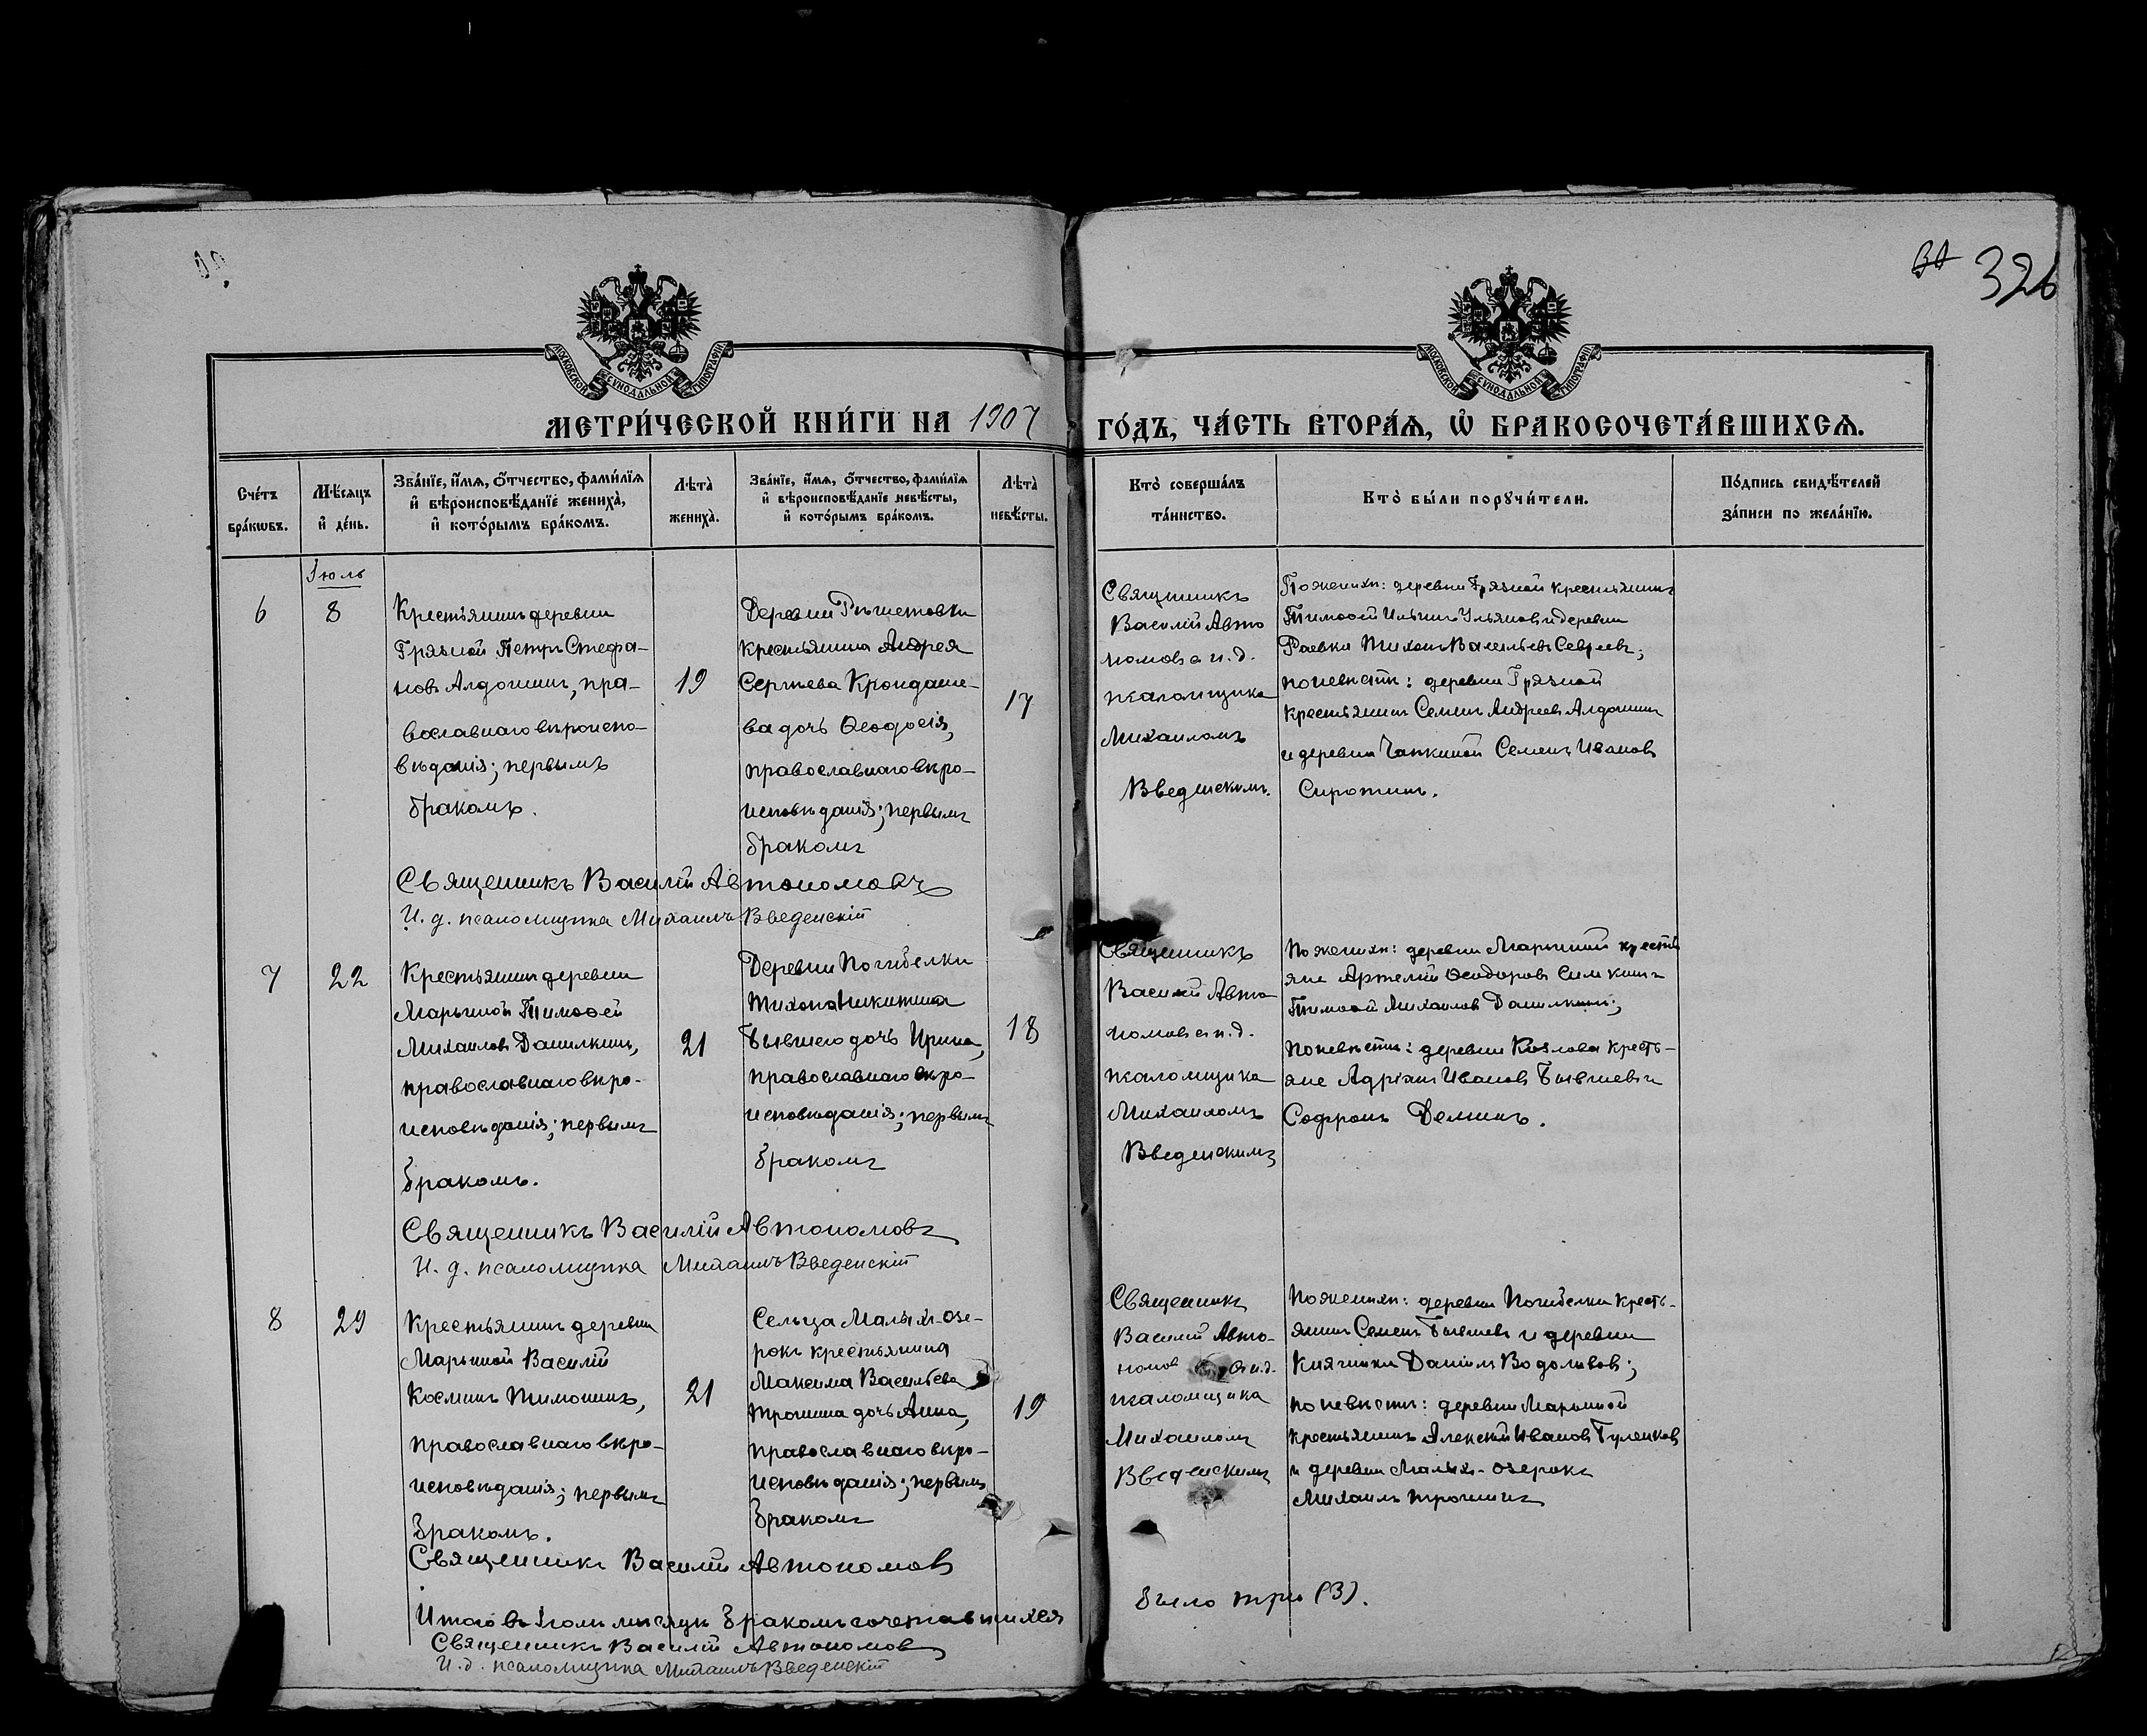 30 326
МОСКОВСКОЙ СѴНОДАЛЬНОЙ ТИПОГРАФІИ
МОСКОВСКОЙ СѴНОДАЛЬНОЙ ТИПОГРАФІИ
МЕТРИ́ЧЕСКОЙ КНИ́ГИ НА 1907 ГО́ДЪ, ЧА́СТЬ ВТОРА́Ѧ, Ѽ БРАКОСОЧЕТА́ВШИХСѦ.
Сче́тъ
бра́кѡвъ.
Мѣ́сяцъ
и де́нь.
Зва́нїе, и́мѧ, о́тчество, фами́лїѧ
и вѣроисповѣ́данїе жениха̀,
и кото́рымъ бра́комъ.
Лѣта̀
жениха̀.
Зва́нїе, и́мѧ, о́тчество, фами́лїѧ
и вѣроисповѣ́данїе невѣ́сты,
и кото́рымъ бра́комъ.
Лѣта̀
невѣ́сты.
Кто̀ соверша́лъ
та́инство.
Кто̀ бы́ли порꙋчи́тели.
По́дпись свидѣ́телей
за́писи по жела́нїю.
Іюль
6
8
Крестьянинъ деревни
Грязной Петръ Стефа-
новъ Алдошинъ, пра-
вославнаго вѣроиспо-
вѣданія; первымъ
бракомъ.
19
Деревни Рѣшетовки
крестьянина Андрея
Сергѣева Крондаше-
ва дочь Ѳеодосія,
православнаго вѣро-
исповѣданія; первымъ
бракомъ
17
Священникъ
Василій Авто
номовъ с и. д.
псаломщика
Михаиломъ
Введенскимъ.
По женихѣ: деревни Грязной крестьянинъ
Тимоѳей Ильинъ Ульяновъ и деревни
Раевки Тихонъ Васильевъ Севреевъ;
по невѣстѣ: деревни Грязной
крестьянинъ Семенъ Андреевъ Алдошинъ
и деревни Чапкиной Семенъ Ивановъ
Сиротинъ.
Священникъ Василій Автономовъ
И. д. псаломщика Михаилъ Введенскій
7
22
Крестьянинъ деревни
Марьиной Тимоѳей
Михаиловъ Данилкинъ,
православнаго вѣро-
исповѣданія; первымъ
бракомъ.
21
Деревни Погибелки
Тихона Никитина
Бывшего дочь Ирина,
православнаго вѣро-
исповѣданія; первымъ
бракомъ
18
Священникъ
Василій Авто
номовъ с и. д.
псаломщика
Михаиломъ
Введенскимъ
По женихѣ: деревни Марьиной кресть
яне Артемій Ѳеодоровъ Симкинъ
Тимоѳей Михаиловъ Данилкинъ;
по невѣстѣ: деревни Козлова кресть-
яне Адріанъ Ивановъ Бывшевъ и
Софронъ Деминъ.
Священникъ Василій Автономовъ
И. д. псаломщика Михаилъ Введенскій
8
29
Крестьянинъ деревни
Марьиной Василій
Косминъ Тимонинъ,
православнаго вѣро-
исповѣданія; первымъ
бракомъ.
21
Сельца Малыхъ-озе-
рокъ крестьянина
Максима Васильева
Трошина дочь Анна,
православнаго вѣро-
исповѣданія; первымъ
бракомъ
19
Священникъ
Василій Авто-
номовъ с и. д.
псаломщика
Михаиломъ
Введенскимъ
По женихѣ: деревни Погибелки кресть-
янинъ Семенъ Бывшевъ и деревни
Княгинки Даніилъ Водольвовъ;
по невѣстѣ: деревни Марьиной
крестьянинъ Алексѣй Ивановъ Гуленковъ
и деревни Малыхъ-озерокъ
Михаилъ Трошинъ
Священникъ Василій Автономовъ
Итого въ Іюлѣ мѣсяцѣ бракомъ сочетавшихся было три (3).
Священникъ Василій Автономовъ
И. д. псаломщика Михаилъ Введенскій